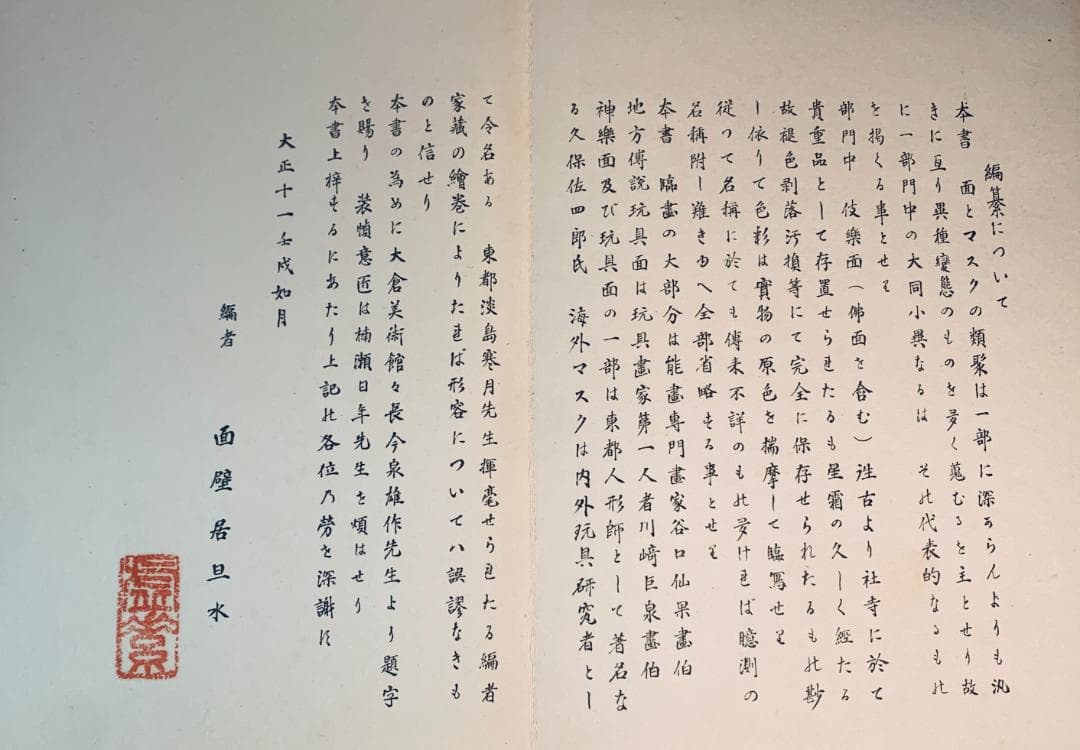 編纂について
本書 面とマスクの類聚は一部に深からんよりも汎
きに亙り異種變態のものを多く蒐むるを主とせり故
に一部門中の大同小異なるは その代表的なるもの
を掲くる事とせり
部門中 伎樂面(佛面を含む)往古より社寺に於て
貴重品として存置せられたるも星霜の久しく經たる
故褪色剥落汚損等にて完全に保存せられたるもの尠
し依りて色彩は實物の原色を揣摩して臨寫せり
從つて名稱に於ても傳来不詳のもの多ければ臆測の
名稱附し難きゆへ全部省略する事とせり
本書 臨畫の大部分は能畫專門畫家谷口仙果畫伯
地方傳說玩具面は玩具畫家第一人者川﨑巨泉畫伯
神樂面及び玩具面の一部は東都人形師として著名な
る久保佐四郎氏 海外マスクは内外玩具研究者とし
て令名ある 東都淡島寒月先生揮毫せられたる編者
家藏の繪巻によりたれば形容については誤謬なきも
のと信せり
本書の為めに大倉美術館々長今泉雄作先生より題字
を賜り 装幀意匠は楠瀬日年先生を煩はせり
本書上梓するにあたり上記の各位の勞を深謝す
大正十一壬戌如月
編者 面壁居旦水